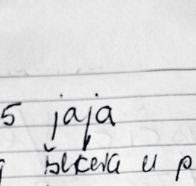 5 jaja
šećera u p